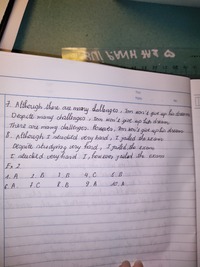 7. Although there are many challenges, Tom won't give up his dreams
Despite many challenges, Tom won't give up his dream
There are many challenges. However, Tom won't give up his dreams
8. Although I studied very hard, I failed the exam
Despite studying very hard, I failed the exam
I studied very hard. I, however, failed the exam
Ex 2
1. A 2. B 3. B 4. C 5. B
6. A 7. C 8. B 9. A 10. A